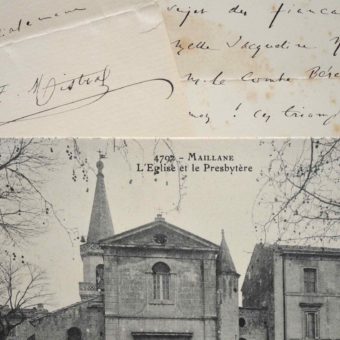 F. Mistral
sujet des fiança
Melle Jacqueline
M. le Comte Bére
4702 - MAILLANE
L'Eglise et le Presbytère